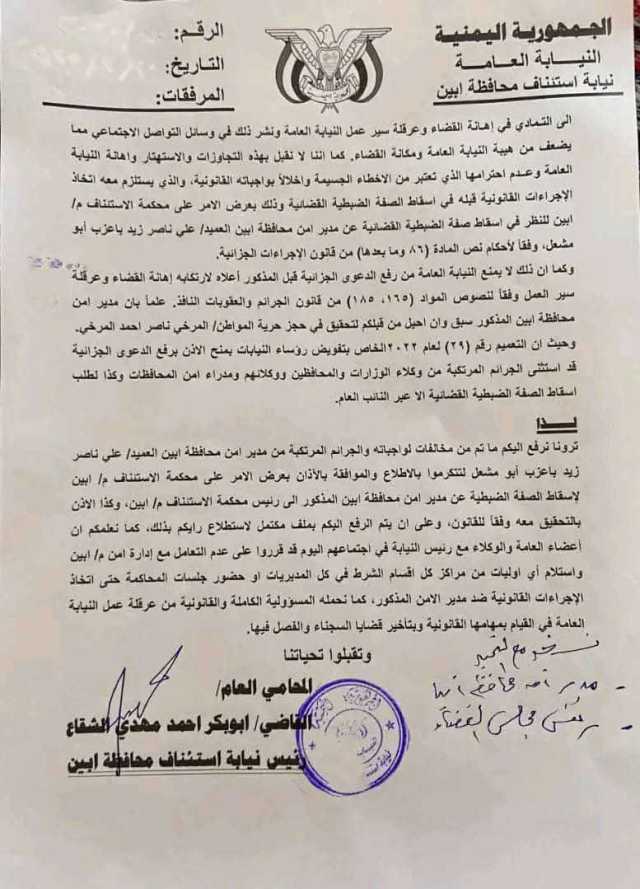 الجمهورية اليمنية
النيابة العامة
نيابة استئناف محافظة ابين
الرقم:
التاريخ:
المرفقات:
الى التمادي في إهانة القضاء وعرقلة سير عمل النيابة العامة ونشر ذلك في وسائل التواصل الاجتماعي مما
يضعف من هيبة النيابة العامة ومكانة القضاء. كما اننا لا نقبل بهذه التجاوزات والاستهتار واهانة النيابة
العامة وعدم احترامها الذي تعتبر من الاخطاء الجسيمة واخلالاً بواجباته القانونية، والذي يستلزم معه اتخاذ
الإجراءات القانونية قبله في اسقاط الصفة الضبطية القضائية وذلك بعرض الامر على محكمة الاستئناف م/
ابين للنظر في اسقاط صفة الضبطية القضائية عن مدير امن محافظة ابين العميد/ علي ناصر زيد باعزب أبو
مشعل، وفقاً لأحكام نص المادة (٨٦ وما بعدها) من قانون الإجراءات الجزائية.
وكما ان ذلك لا يمنع النيابة العامة من رفع الدعوى الجزائية قبل المذكور أعلاه لارتكابه إهانة القضاء وعرقلة
سير العمل وفقاً لنصوص المواد (١٦٥، ١٨٥) من قانون الجرائم والعقوبات النافذ. علماً بان مدير امن
محافظة ابين المذكور سبق وان احيل من قبلكم لتحقيق في حجز حرية المواطن/ المرخي ناصر احمد المرخي.
وحيث ان التعميم رقم (٢٩) لعام ٢٠٢٢الخاص بتفويض رؤساء النيابات بمنح الاذن برفع الدعوى الجزائية
قد استثنى الجرائم المرتكبة من وكلاء الوزارات والمحافظين ووكلائهم ومدراء امن المحافظات وكذا لطلب
اسقاط الصفة الضبطية القضائية الا عبر النائب العام.
لذا
ترونا نرفع اليكم ما تم من مخالفات لواجباته والجرائم المرتكبة من مدير امن محافظة ابين العميد/ علي ناصر
زيد باعزب أبو مشعل لتتكرموا بالاطلاع والموافقة بالأذان بعرض الامر على محكمة الاستئناف م/ ابين
لإسقاط الصفة الضبطية عن مدير امن محافظة ابين المذكور الى رئيس محكمة الاستئناف م/ ابين، وكذا الاذن
بالتحقيق معه وفقاً للقانون، وعلى ان يتم الرفع اليكم بملف مكتمل لاستطلاع رايكم بذلك، كما نعلمكم ان
أعضاء العامة والوكلاء مع رئيس النيابة في اجتماعهم اليوم قد قرروا على عدم التعامل مع إدارة امن م/ ابين
واستلام أي اوليات من مراكز كل اقسام الشرط في كل المديريات او حضور جلسات المحاكمة حتى اتخاذ
الإجراءات القانونية ضد مدير الامن المذكور، كما نحمله المسؤولية الكاملة والقانونية من عرقلة عمل النيابة
العامة في القيام بمهامها القانونية وبتأخير قضايا السجناء والفصل فيها.
وتقبلوا تحياتنا
المحامي العام/
القاضي/ ابوبكر احمد مهدي الشقاع
رئيس نيابة استئناف محافظة ابين
مع التحية
- مدير امن محافظة ابين
- مجلس القضاء